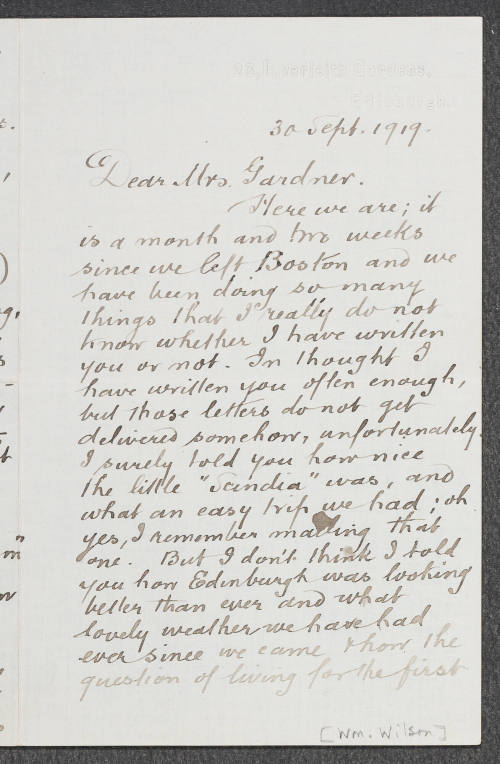 Gardens,
Edinburgh.
30 Sept. 1919.
Dear Mrs. Gardner.
Here we are; it
is a month and two weeks
since we left Boston and we
have been doing so many
things that I really do not
know whether I have written
you or not. In thought I
have written you often enough,
but those letters do not get
delivered somehow, unfortunately.
I surely told you how nice
the little "Scindia" was, and
what an easy trip we had; oh
yes, I remember mailing that
one. But I don't think I told
you how Edinburgh was looking
better than ever and what
lovely weather we have had
ever since we came & how the
question of living for the first
[Wm. Wilson]